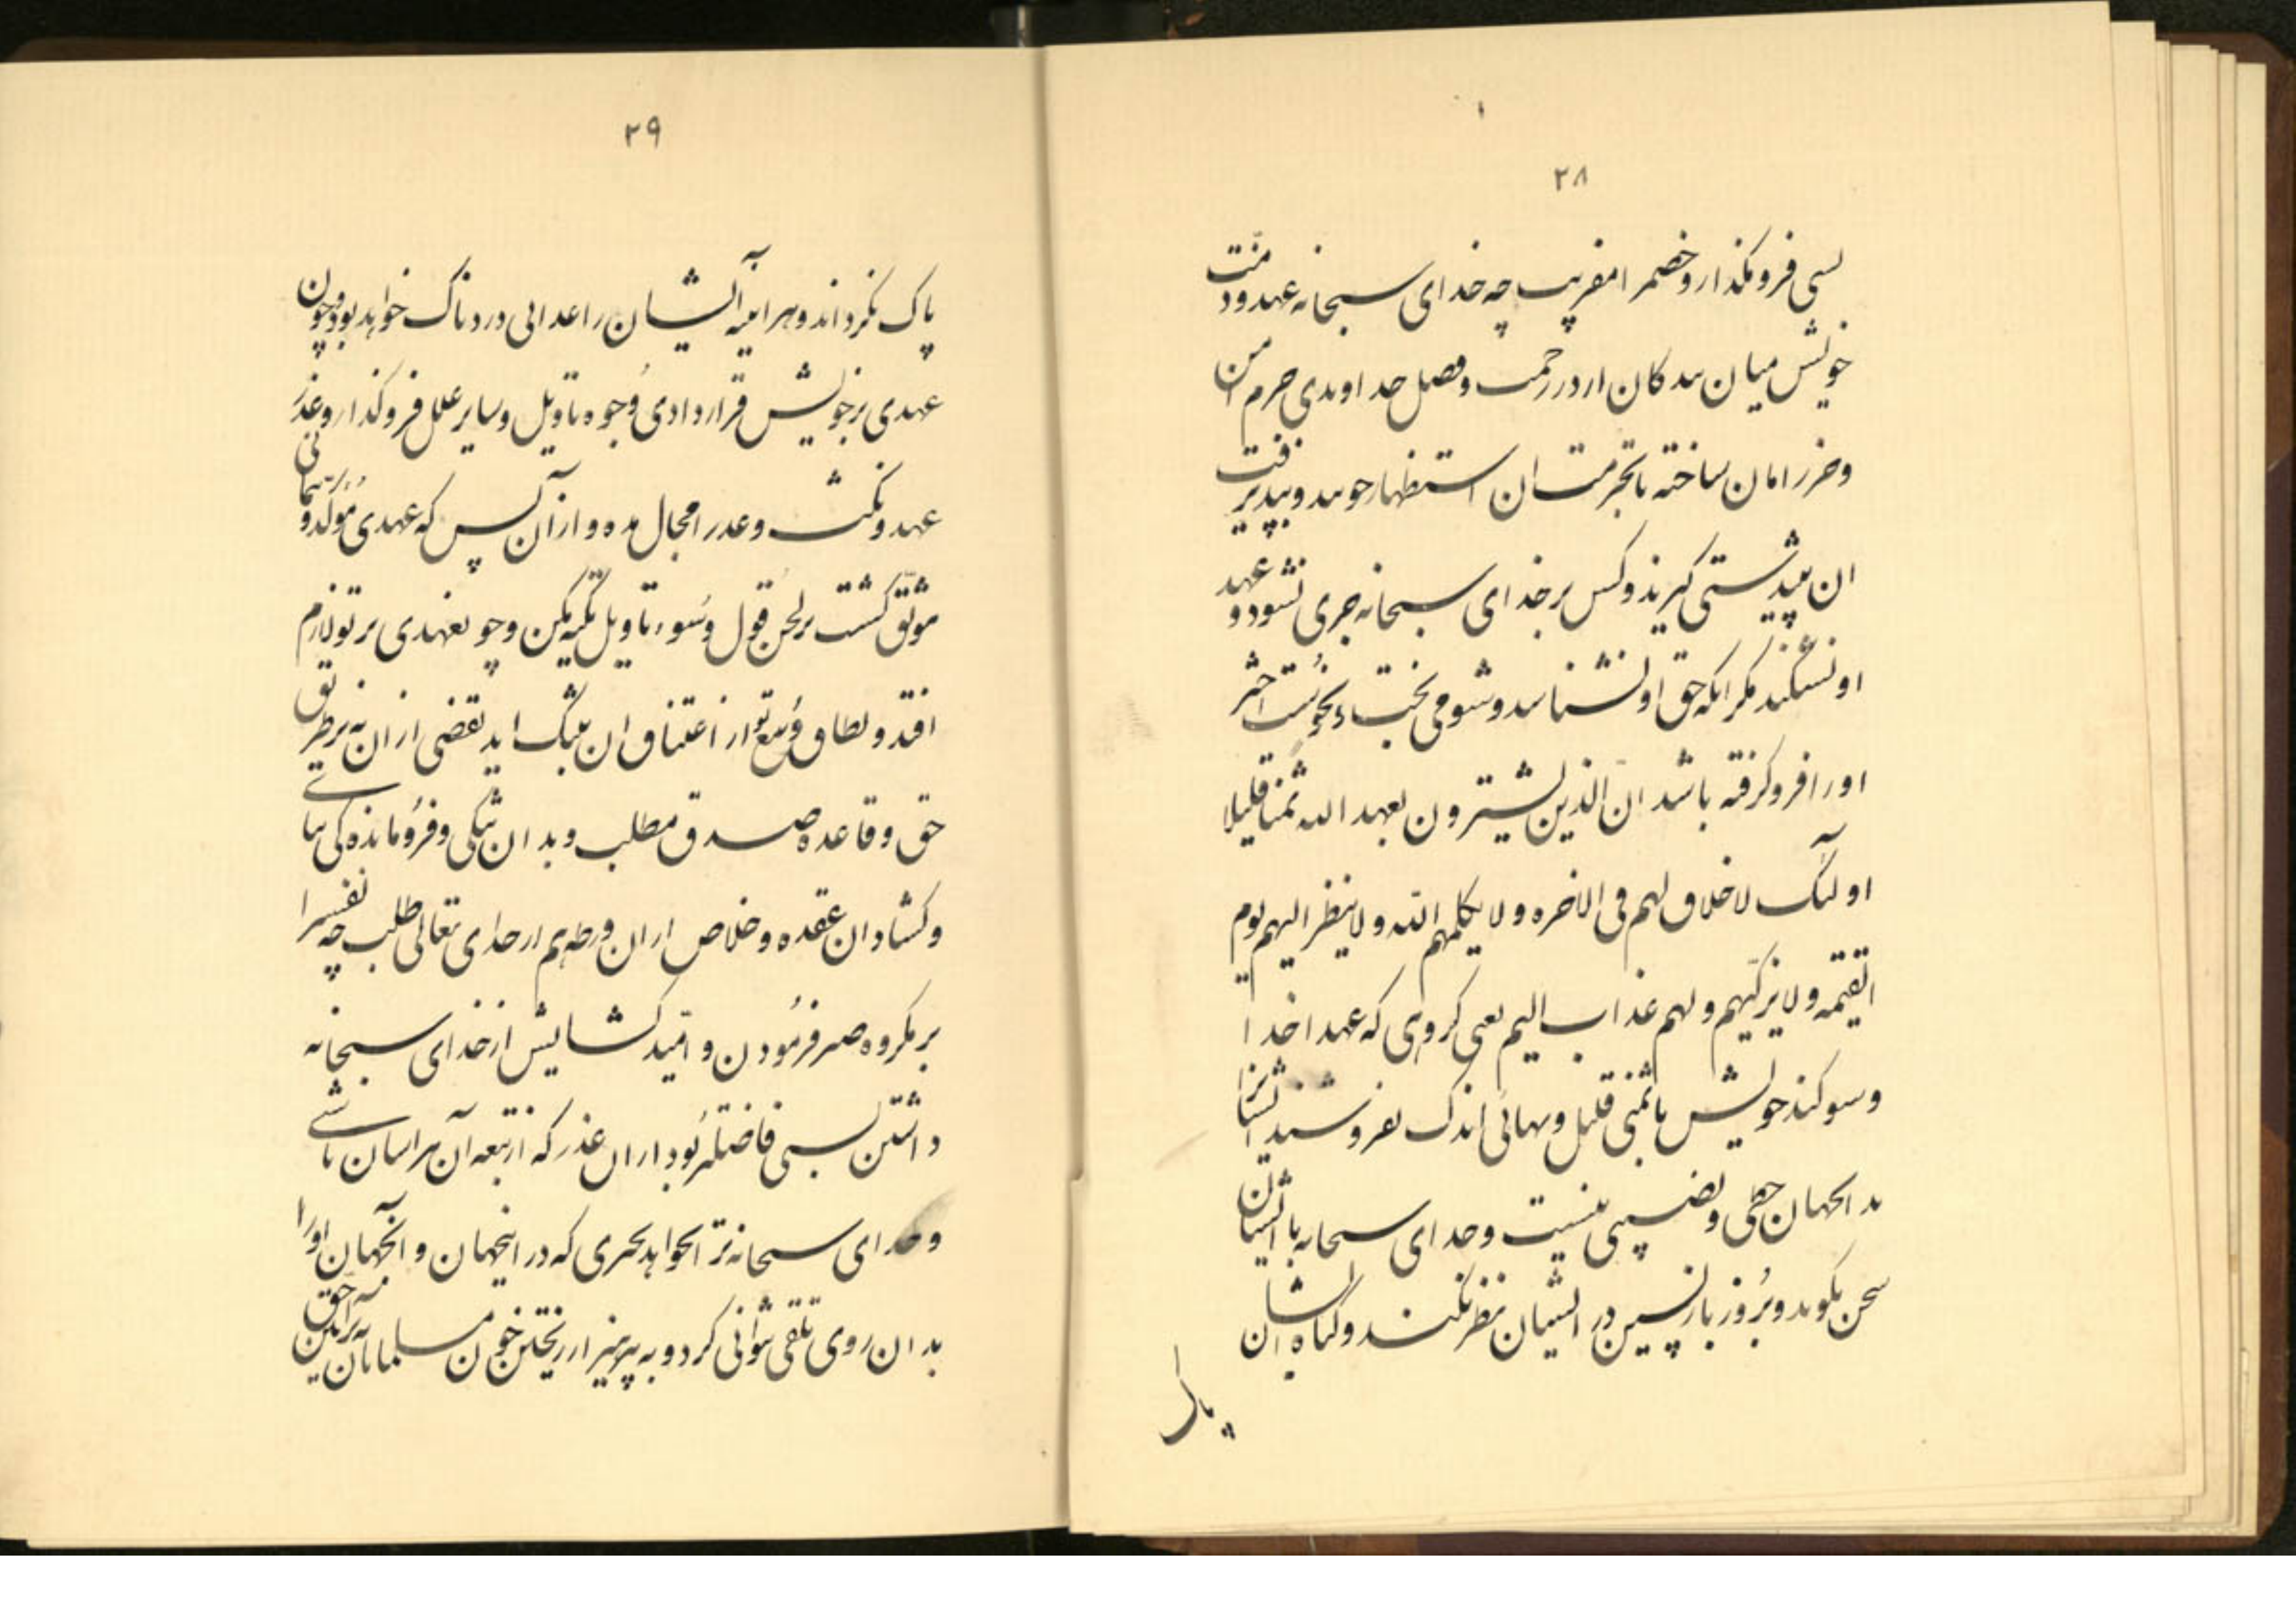 ۲۸
بسی فرو مگذار و خصم را مفریب چه خدای سبحانه عهد و ذمت
خویش میان بندگان از در رحمت و فضل خداوندی حرم امن
و حرز امان ساخته تا بحرمت ان استظهار جویند و بپذیرفت
ان پشتی گیرند و کس بر خدای سبحانه جری نشود و عهد
او نشکند مگر انکه حق او نشناسد و شومی بخت و نحوست اختر
او را فرو گرفته باشد ان الذین یشترون بعهد الله ثمنا قلیلا
اولئک لا خلاق لهم فی الاخره و لا یکلمهم الله و لا ینظر الیهم یوم
القیمه و لا یزکیهم و لهم عذاب الیم یعنی گروهی که عهد خدا
و سوگند خویش با ثمنی قلیل و بهائی اندک بفروشند ایشانرا
بد انجهان حظی و نصیبی نیست و خدای سبحانه با ایشان
سخن نگوید و بروز بازپسین در ایشان نظر نکند و گناه ایشان
پاک
۲۹
پاک نگرداند و هر اینه ایشان را عذابی دردناک خواهد بود و چون
عهدی بر خویش قرار دادی وجوه تاویل و سایر علل فرو گذار و عذر
عهد و نکث و غدر را مجال مده و از آن پس که عهدی مؤکد و
موثق گشت بر لحن قول و سوء تاویل تکیه مکن و چو بعهدی بر تو لازم
افتد و نطاق وسع تو از اعتناق ان تنگ اید تقضی از ان نه بر طریق
حق و قاعده صدق مطلب و بدان تنگی و فروماندگی
و گشادن عقده و خلاص از ان ورطه هم از خدای تعالی طلب چه نفس را
بر مکروه صبر فرمودن و امید گشایش از خدای سبحانه
داشتن بسی فاضلتر بود از ان غدر که از تبعه آن هراسان باشی
و خدای سبحانه ترا بخواهد بحری که در اینجهان و آنجهان او را
بدان روی تلقی نتوانی کرد و به پرهیز از ریختن خون مسلمانان